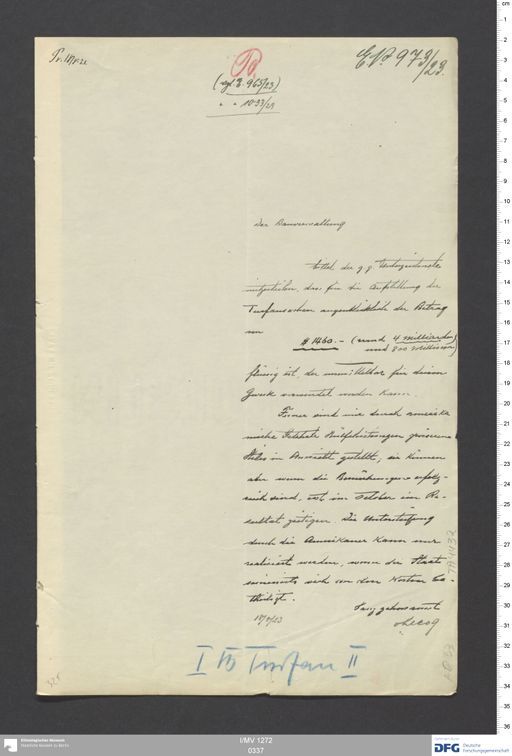 Pr. 18/9. 23
Pd
E. No 973/23.
(vgl. E. 965/23)
" " 1033/23
Der Bauverwaltung
bittet der g. g. Unterzeichnete
mitzuteilen, dass für die Aufstellung der
Turfansachen augenblicklich der Betrag
von
$ 1460.- (rund 4 Milliarden
und 800 Millionen)
flüssig ist, der unmittelbar für diesen
Zweck verwendet werden kann.
Ferner sind uns durch amerika
nische Gelehrte Hülfeleistungen grösseren
Stiles in Aussicht gestellt; sie können
aber, wenn die Bemühungen erfolg-
reich sind, erst im Oktober ein Re-
sultat zeitigen. Die Unterstützung
durch die Amerikaner kann nur
realisiert werden, wenn der Staat
seinerseits sich an den Kosten be-
theiligt.
Ganz gehorsamst
18/9/23
v Lecoq
I B Turfan II
I/MV 1272
0337
Ethnologisches Museum
Staatliche Museen zu Berlin
DFG
Deutsche
Forschungsgemeinschaft